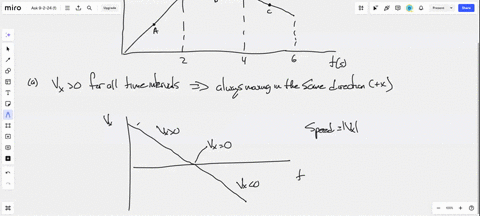 miro
Ask 9-2-24 (1)
Present
Share
A
C
2
4
6
t(s)
(a) Vx>0 for all time intervals => always moving in the same direction (+x)
Vx
Vx>0
Vx>0
Speed = |Vx|
t
Vx<0